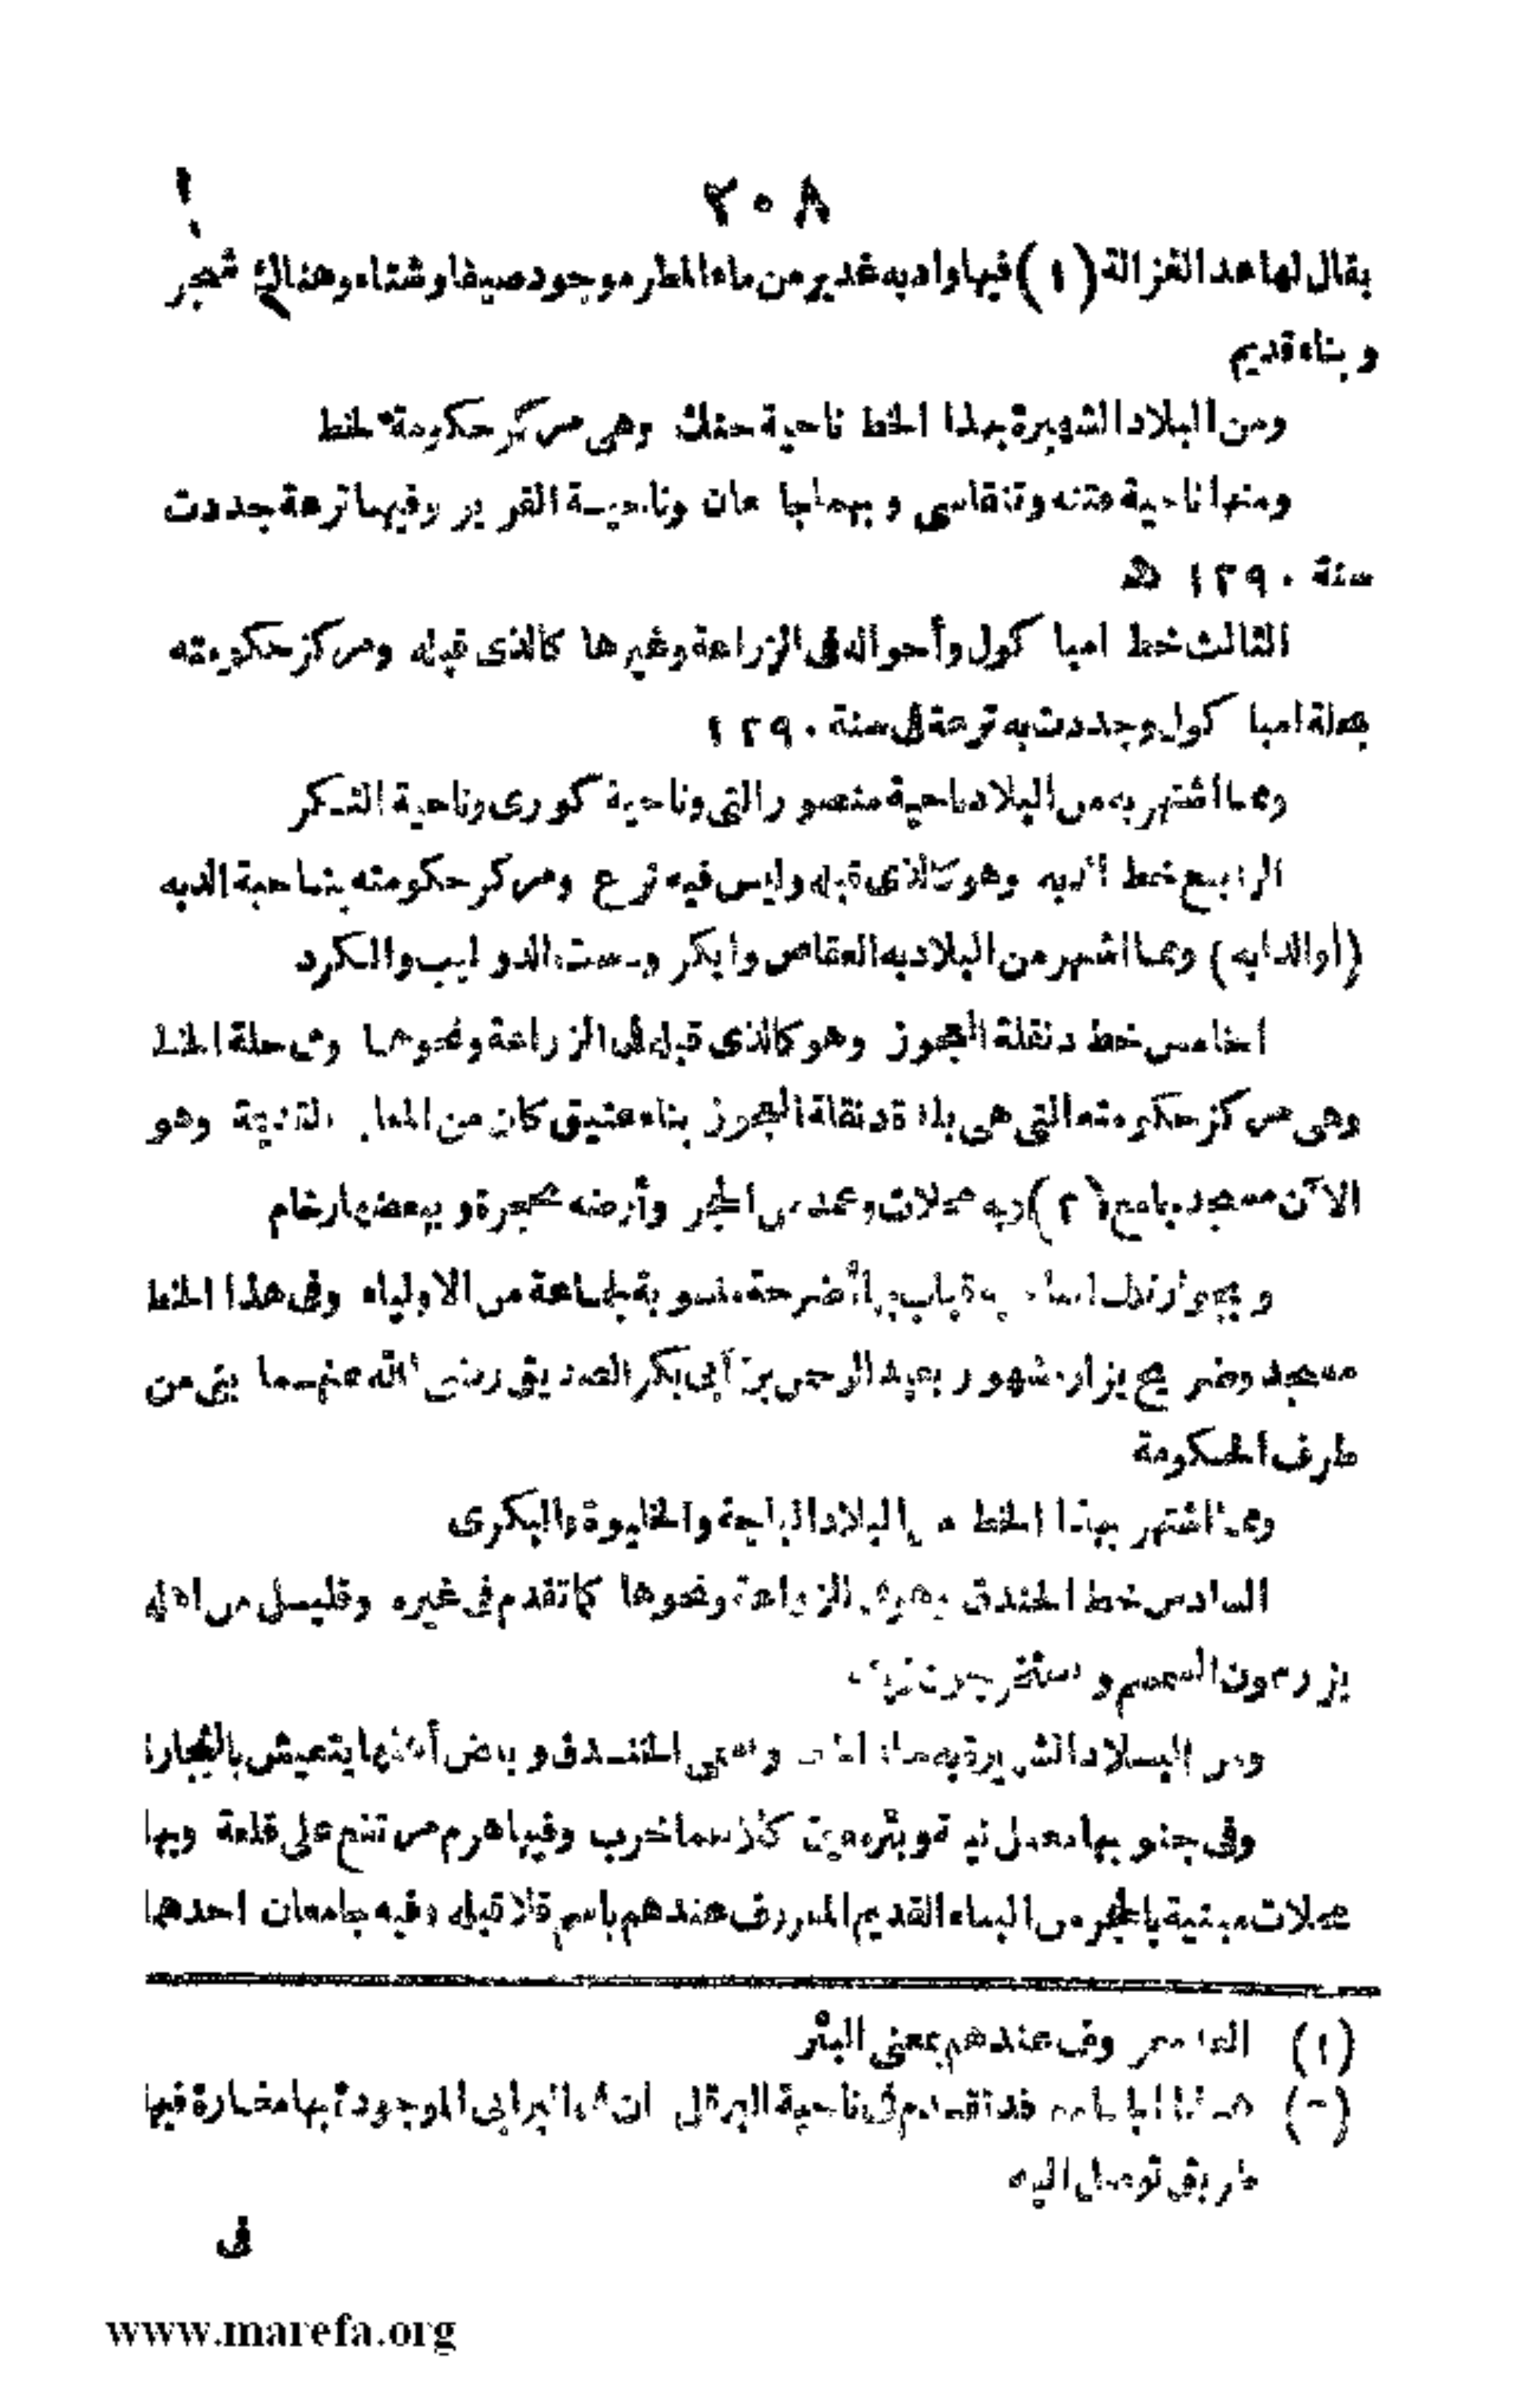 ٢٠٨
يقال لها عد الغزالة (١) فيها واد به غدير من ماء المطر موجود صيفا وشتاء وهناك شجر
وبناء قديم
ومن البلاد الشهيرة بهذا الخط ناحية حنك وهى مركز حكومة الخط
ومنها ناحية متنه وتنقاسى وبهما جامعان وناحية القرير وفيها ترعة جددت
سنة ١٢٩٠ هـ
الثالث خط امبا كول وأحواله فى الزراعة وغيرها كالذى قبله ومركز حكومته
بحلة امبا كول وجددت به ترعة فى سنة ١٢٩٠
ومما اشتهر به من البلاد ناحية منصور التى وناحية كورى وناحية الشكر
الرابع خط الدبه وهو كالذى قبله وليس فيه ترع ومركز حكومته بناحية الدبه
(أو الدابه) ومما اشهر من البلاد به العقاص وابكر والدواليب والكرد
الخامس خط دنقلة العجوز وهو كالذى قبله فى الزراعة ونحوها ومن حلة الخط
وهى مركز حكومته التى هى بلدة دنقلة العجوز بناء عتيق كان من القديمة وهو
الآن مسجد جامع (٢) وبه محلات وعمد من الحجر وأرضه محجرة وبعضها رخام
وبجوار تلك قباب بها أضرحة منسوبة لجماعة من الاولياء وفى هذا الخط
مسجد وضريح يزار مشهور بعبد الرحمن بن أبى بكر الصديق رضى الله عنهما بنى من
طرف الحكومة
ومما اشتهر بهذا الخط من البلاد الباجة والخليوة والبكرى
السادس خط الخندق وهو فى الزراعة ونحوها كما تقدم فى غيره وقليل من اهله
يزرعون السمسم ويستخرجون زيته
ومن البلاد الشهيرة بهذا الخط وهى الخندق وبعض أهلها يتعيش بالتجارة
وفى جنوبيها معمل نيلة وبئر معين كلاهما خرب وفيها هرم مرتفع على قلعة وبها
محلات مبنية بالحجر من البناء القديم المعروف عندهم باسم قلاقيله وفيه جامعان احدها
(١) العد معروف عندهم بمعنى البئر
(٢) هذا الجامع قد تقدم فى ناحية البرقل ان البرابى الموجودة بها مغارة فيها
طريق توصل اليه
فى
www.marefa.org